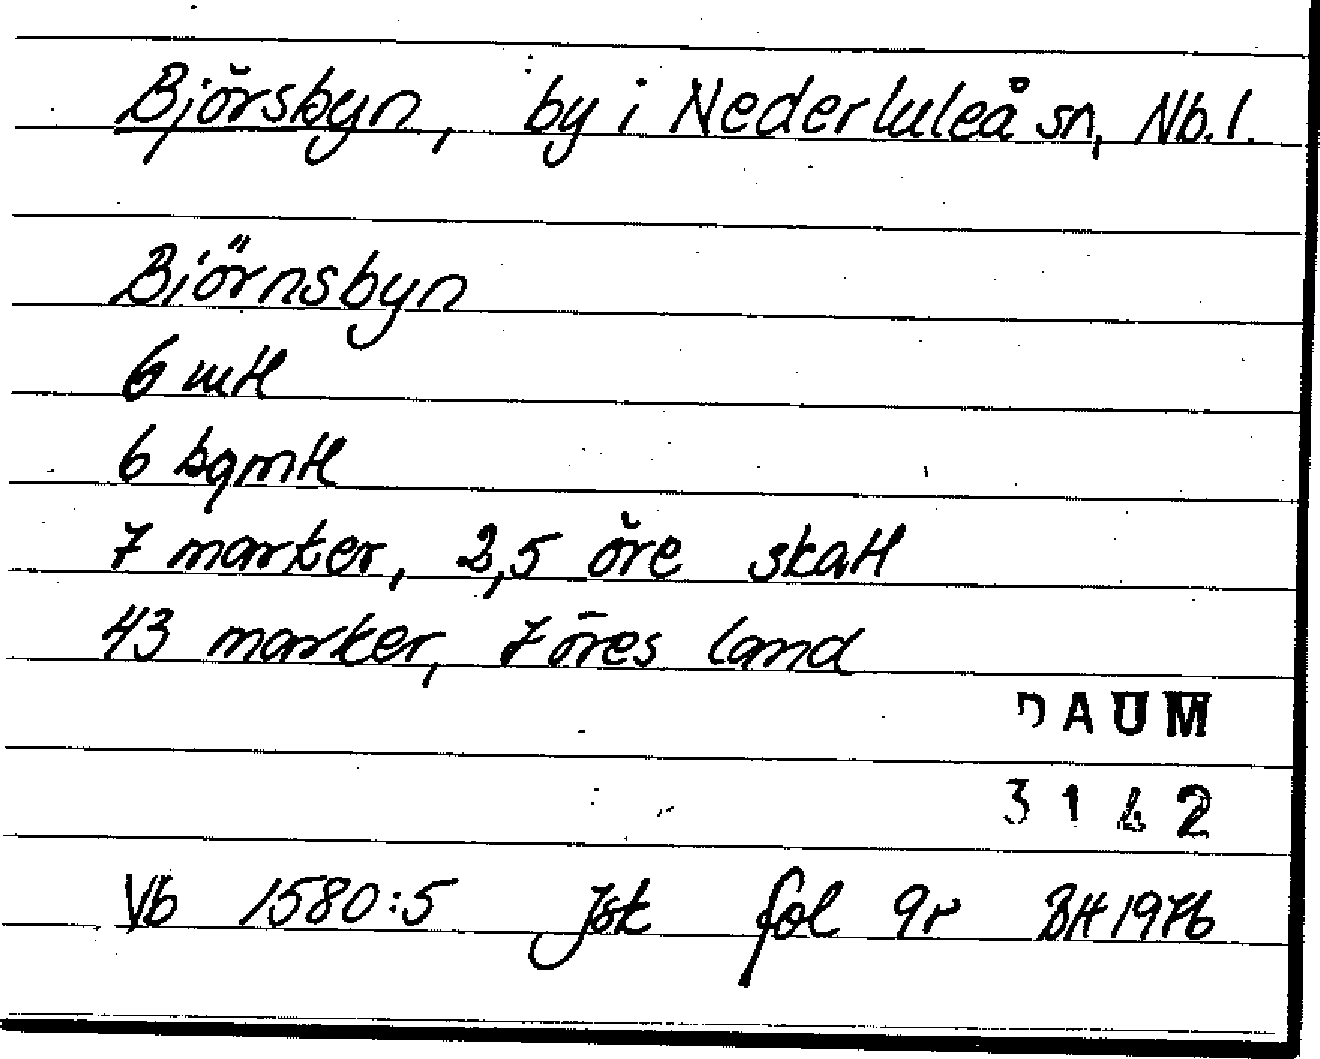 Björsbyn, by i Nederluleå sn, Nb. l.
Biörnsbyn
6 mtl
6 bgmtl
7 marker, 2,5 öre skatt
43 marker, 7 öres land
DAUM
3142
Vb 1580:5 Jsk fol 9r BH 1976